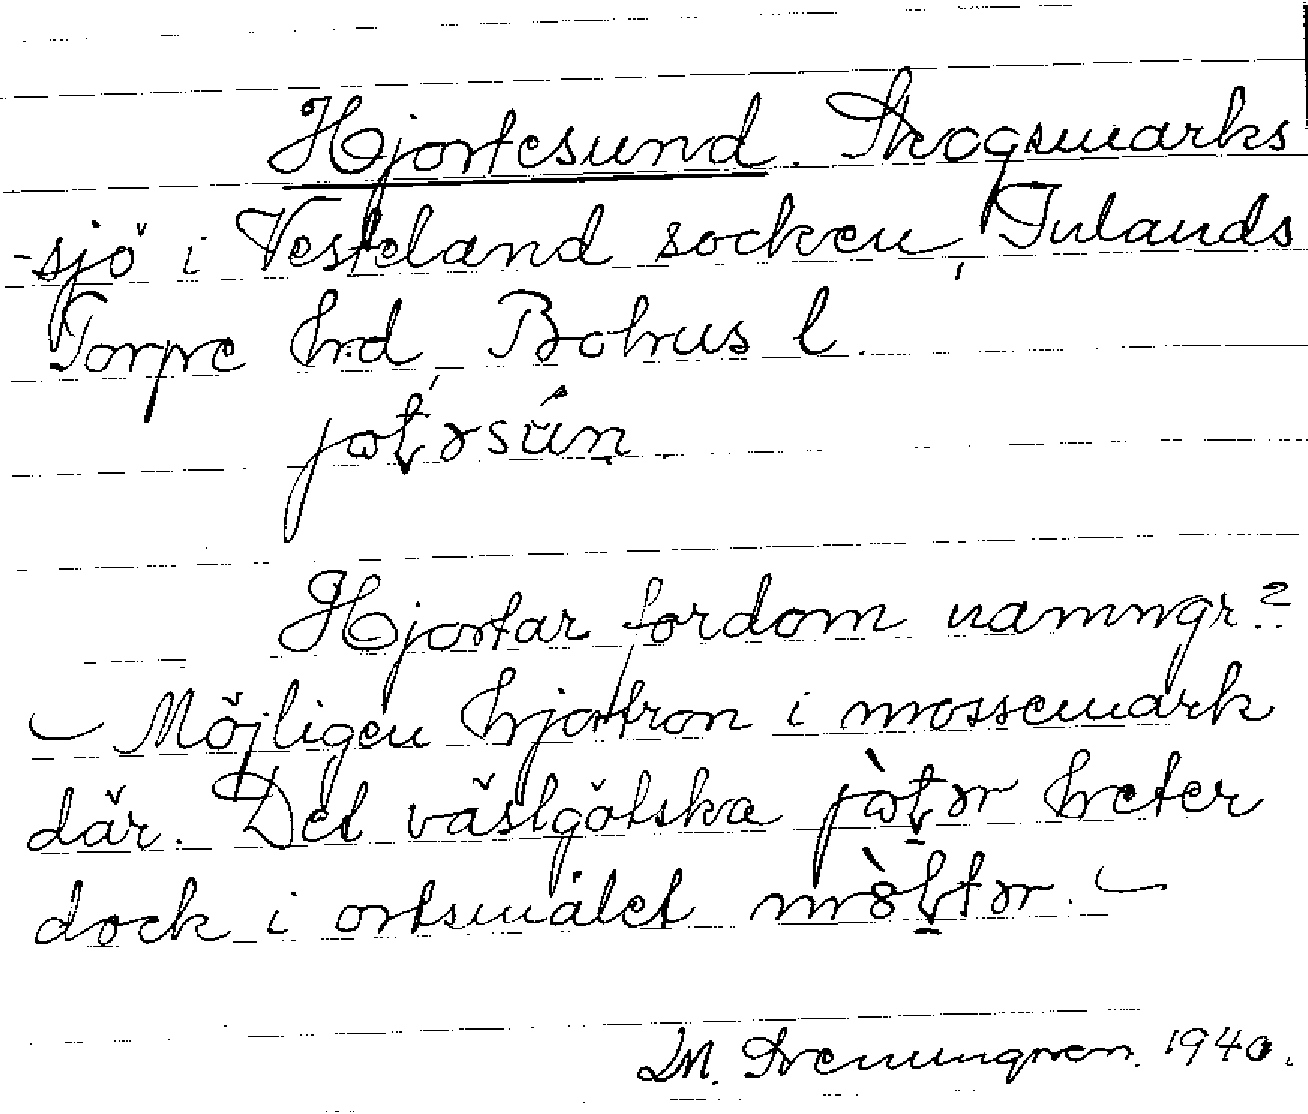 Hjortesund. Skogsmarks
-sjö i Vesteland socken, Inlands
Torpe hrd Bohus l.
Hjortar fordom namngr?
– Möjligen hjortron i mossemark
där. Det västgötska heter
dock i ortsmålet –
1940.